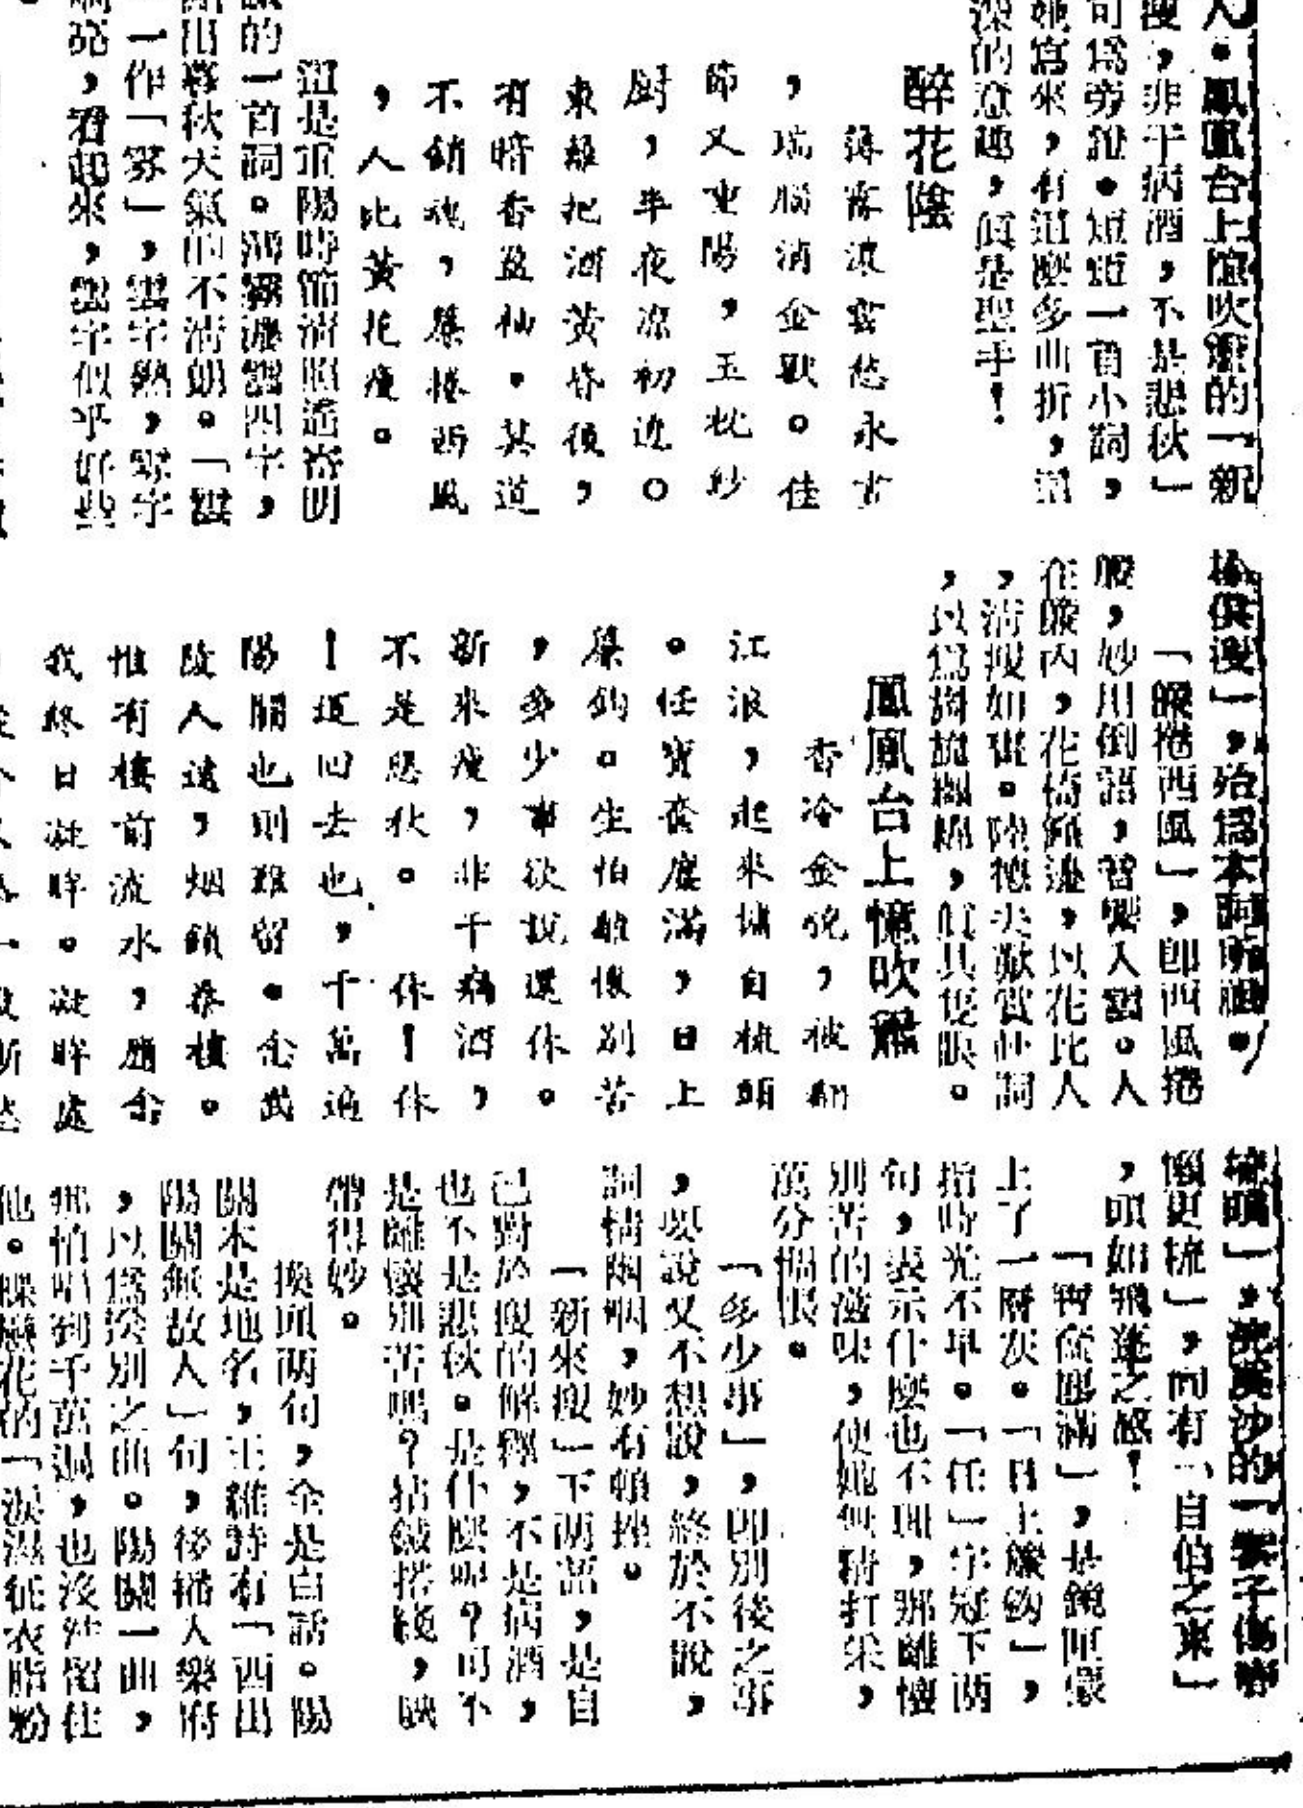 人。鳳凰台上憶吹簫的「新
瘦,非干病酒,不是悲秋」
可爲旁證。短短一首小詞,
她寫來,有這麼多曲折,這
深的意趣,眞是聖手!
醉花陰
薄霧濃雲愁永晝
,瑞腦消金獸。佳
節又重陽,玉枕紗
厨,半夜凉初透。
東籬把酒黃昏後,
有暗香盈袖。莫道
不銷魂,簾捲西風
,人比黃花瘦。
這是重陽時節淸照遙寄明
的一首詞。薄霧濃雲四字,
出暮秋天氣的不淸朗。「雲
一作「雰」,雲字熟,雰字
亮,看起來,雲字似乎好些
。
俱瘦」,殆爲本詞所祖。
「簾捲西風」,卽西風捲
服,妙用倒語,警響入雲。人
在簾內,花倚籬邊,以花比人
,淸瘦如畫。陸德夫歎賞此詞
,以爲旖旎纒綿,眞具隻眼。
鳳凰台上憶吹簫
香冷金猊,被翻
江浪,起來慵自梳頭
。任寶奩塵滿,日上
簾鈎。生怕離懷別苦
,多少事欲說還休。
新來瘦,非干病酒,
不是悲秋。 休!休
!這回去也,千萬遍
陽關也則難留。念武
陵人遠,烟鎖秦樓。
惟有樓前流水,應念
我終日凝眸。凝眸處
梳頭」,浣溪沙的「髻子傷春
懶更梳」,同有「自伯之東」
,頭如飛蓬之感!
「寶奩塵滿」,是鏡匣蒙
上了一層灰。「日上簾鈎」,
指時光不早。「任」字冠下兩
句,表示什麼也不理,那離懷
別苦的滋味,使她無精打采,
萬分惆悵。
「多少事」,卽別後之事
,要說又不想說,終於不說,
詞情幽咽,妙有頓挫。
「新來瘦」下兩語,是自
己對於瘦的解釋,不是病酒,
也不是悲秋。是什麼呢?可不
是離懷別苦嗎?拈線搭綫,映
帶得妙。
換頭兩句,全是白話。陽
關本是地名,王維詩有「西出
陽關無故人」句,後播入樂府
,以爲送別之曲。陽關一曲,
那怕唱到千萬遍,也沒法留住
他。蝶戀花的「淚濕征衣脂粉